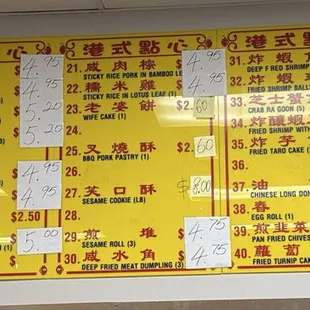 港式點心
港式點
4.95
4.95
5.20
5.20
4.95
4.95
$2.50
5.00
21. 咸肉粽 4.95
STICKY RICE PORK IN BAMBOO LEA
22. 糯米雞 4.95
STICKY RICE IN LOTUS LEAF (1)
23. 老婆餅 $2.60
WIFE CAKE (1)
24.
25. 叉燒酥 $2.60
BBQ PORK PASTRY (1)
26.
27. 笑口酥 $8.00
SESAME COOKIE (LB)
28.
29. 煎堆 4.75
SESAME ROLL (3)
30. 咸水角 4.75
DEEP FRIED MEAT DUMPLING (3)
31. 炸蝦
DEEP FRIED SHRIMP
32. 炸蝦
FRIED SHRIMP BALL
33. 芝士蟹
CRAB RA GOON (5)
34. 炸釀蝦
FRIED SHRIMP WITH
35. 炸芋
FRIED TARO CAKE
36.
37. 油
CHINESE LONG DON
38. 春
EGG ROLL (1)
39. 煎韭菜
PAN FRIED CHIVES
40. 蘿蔔
FRIED TURNIP CAKE